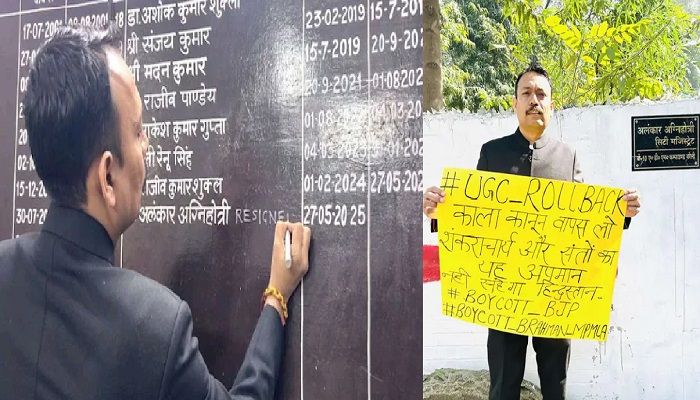 17-07-2001 09-08-2001 18 डा.अशोक कुमार शुक्ला 23-02-2019 15-7-201
श्री संजय कुमार 15-7-2019 20-9-20
श्री मदन कुमार
राजीव पाण्डेय 20-9-2021 01-08-202
राकेश कुमार गुप्ता 04-03-20
रेनू सिंह
15-12- राजीव कुमार शुक्ल 01-02-2024 27-05-202
30-07- अलंकार अग्निहोत्री RESIGNE 27-05-2025
अलंकार अग्निहोत्री
सिटी मजिस्ट्रेट
#UGC_ROLLBACK
काला कानून वापस लो
शंकराचार्य और संतों का
यह अपमान
नहीं सहेगा हिन्दुस्तान-
#BOYCOTT_BJP
#BOYCOTT_BRAHMAN_MPMLA